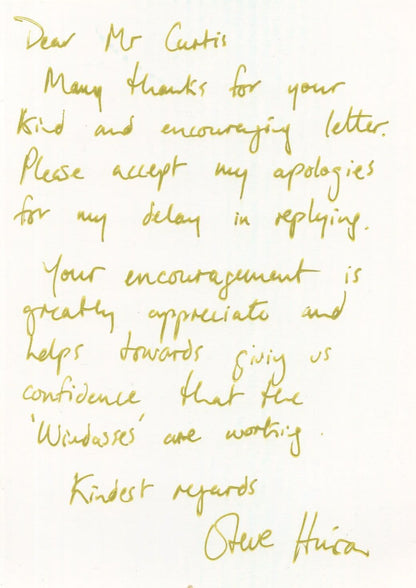 Dear Mr Curtis
Many thanks for your
kind and encouraging letter.
Please accept my apologies
for my delay in replying.
Your encouragement is
greatly appreciate and
helps towards giving us
confidence that the
'Windasses' are working.
Kindest regards
Steve